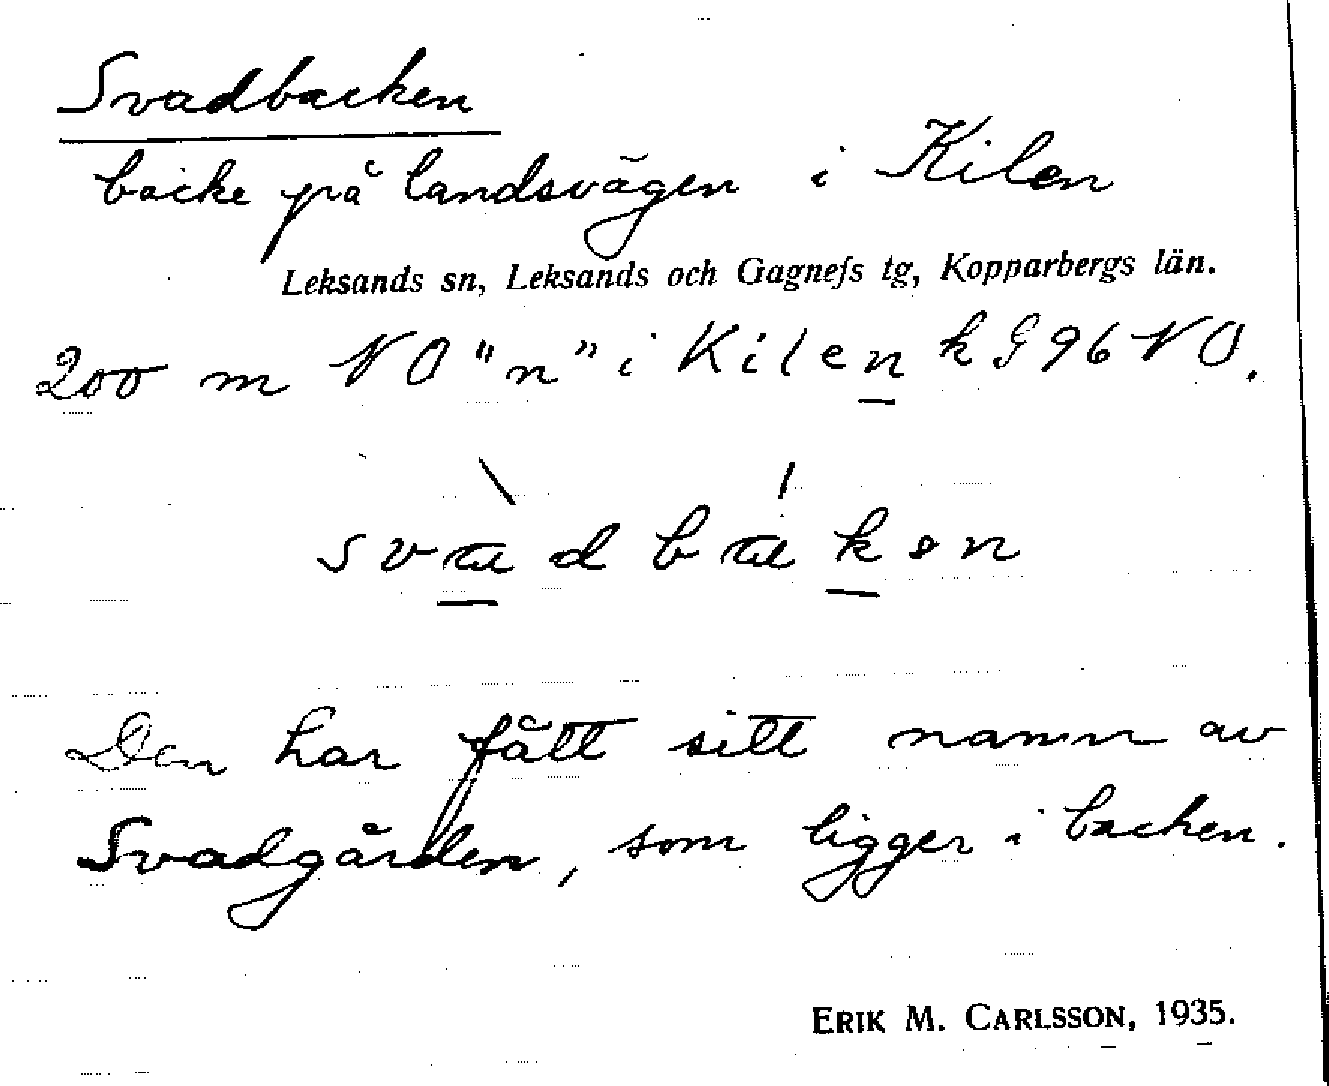 Svadbacken
backe på landsvägen i Kilen
Leksands sn, Leksands och Gagnefs tg, Kopparbergs län.
200 m NO "n" i Kilen k G 96 NO.
svadbaken
Den har fått sitt namn av
Svadgården, som ligger i backen.
ERIK M. CARLSSON, 1935.